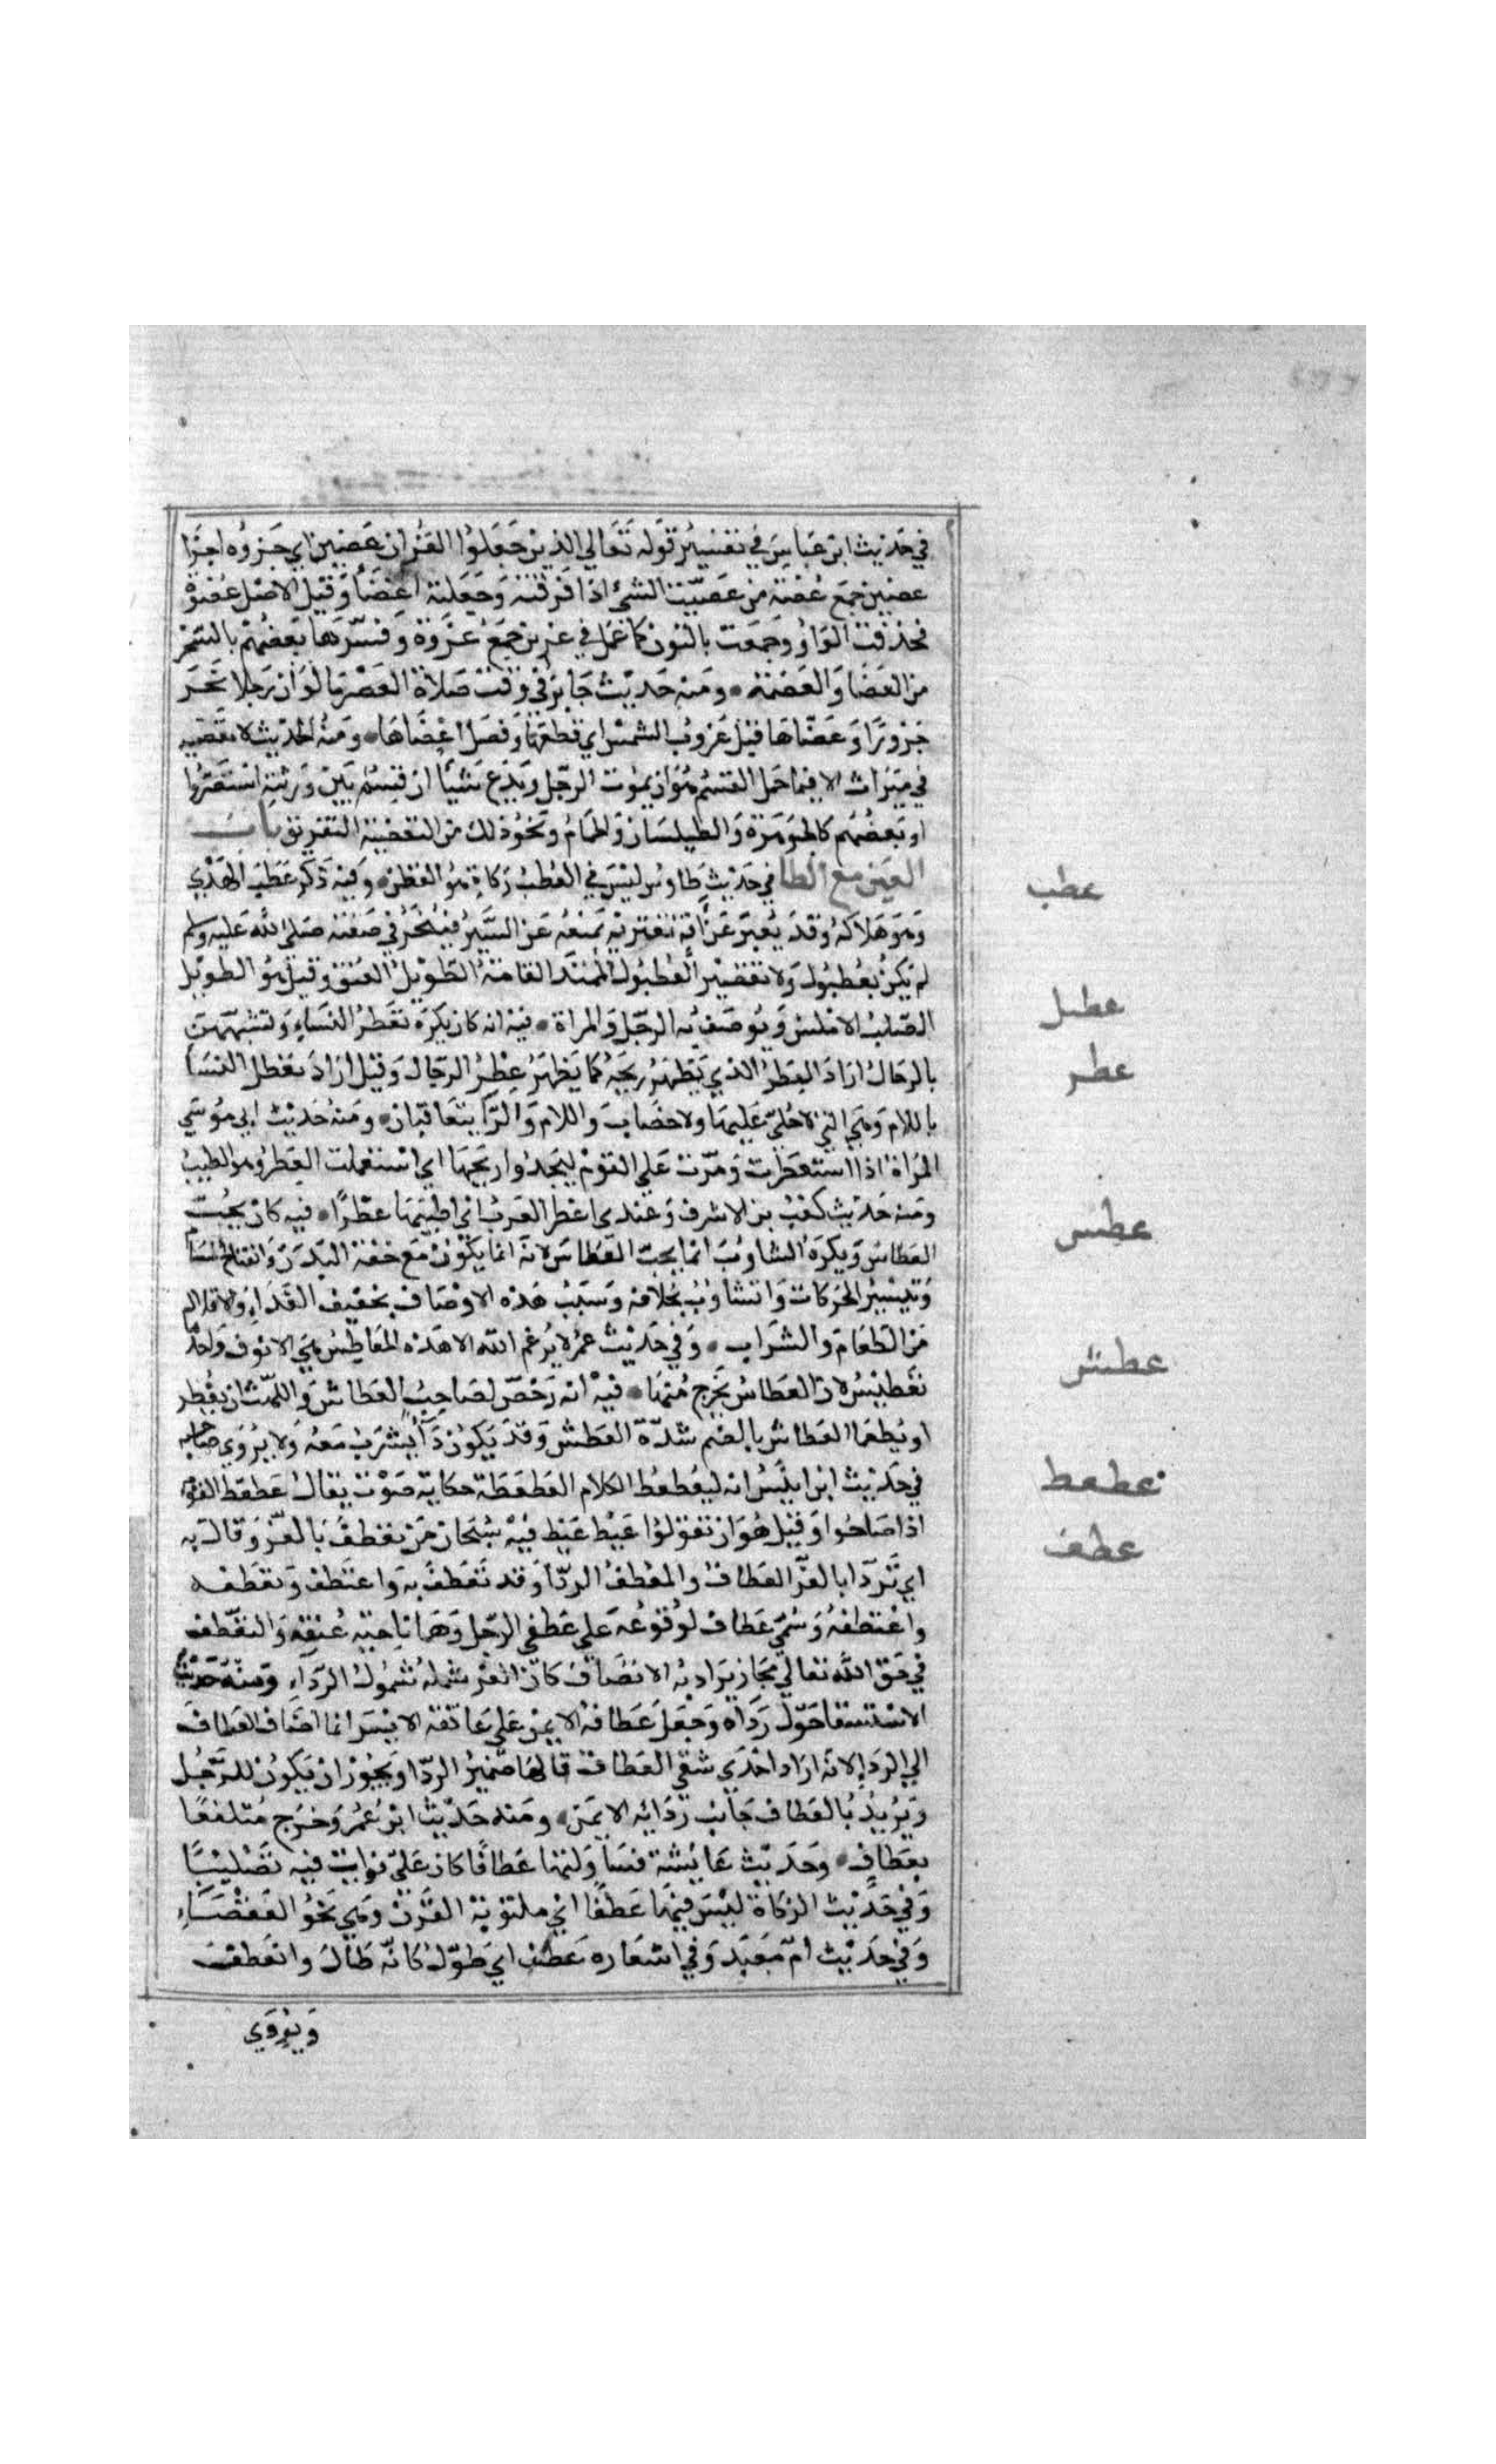 في حديث ابن عباس في تفسير قوله تعالى الذين جعلوا القران عضين اي جزوه اجزا
عضين جمع عضة من عضيت الشيء اذا فرقته وجعلته اعضا وقيل الاصل عضوة
فحذفت الواو وجمعت بالنون كما عمل في عزين جمع عزوة وفسرها بعضهم بالسحر
من العضا والعضهة ومنه حديث جابر في وقت صلاة العصر ما لو ان رجلا نحر
جزورا وعضاها قبل غروب الشمس اي قطعها وفصل اعضاها ومنه الحديث لا تعضيه
في ميراث الا فيما حمل القسم هو ان يموت الرجل ويدع شيا ان قسم بين ورثته استضروا
او بعضهم كالجوهرة والطيلسان والحمام ونحو ذلك من التعضية التفريق باب
العين مع الطا في حديث طاوس ليس في العطب زكاة هو القطن وفيه ذكر عطب الهدي
عطب
وهو هلاكه وقد يعبر عن افة تعتريه تمنعه عن السير فينحر في صفته صلى الله عليه وسلم
لم يكن بعطبول ولا بقصير العطبول الممتد القامة الطويل العنق وقيل هو الطويل
عطبل
الصلب الاملس ويوصف به الرجل والمراة فيه انه كان يكره تعطر النساء وتشبههن
عطر
بالرجال اراد العطر الذي يظهر ريحه كما يظهر عطر الرجال وقيل اراد تعطل النسا
باللام وهي التي لا حلي عليها ولا خضاب واللام والرا يتعاقبان ومنه حديث ابي موسي
المراة اذا استعطرت ومرت علي القوم ليجدوا ريحها اي استعملت العطر وهو الطيب
ومنه حديث كعب بن الاشرف وعندي اعطر العرب اي اطيبها عطرا فيه كان يحب
عطس
العطاس ويكره التثاوب انما يحب العطاس لانه انما يكون مع خفة البدن وانفتاح المسام
وتيسير الحركات والتثاوب بخلافه وسبب هذه الاوصاف تخفيف الغذاء والاقلال
من الطعام والشراب وفي حديث عمر لا يرغم الله الا هذه المعاطس هي الانوف واحدها
عطش
معطس لان العطاس يخرج منها فيه انه رخص لصاحب العطاش واللهث ان يفطر
او يطعما العطاش بالضم شدة العطش وقد يكون دا يشرب معه ولا يروي صاحبه
عطعط
في حديث ابن انيس انه ليعطعط الكلام العطعطة حكاية صوت يقال عطعط القوم
اذا صاحوا وقيل هو ان يقولوا عيط عيط فيه سبحان من تعطف بالعز وقال به
عطف
اي تردا بالعز العطاف والمعطف الردا وقد تعطف به واعتطف وتعطفه
واعتطفه وسمي عطاف لوقوعه علي عطفي الرجل وهما ناحية عنقه والتعطف
في حق الله تعالي مجاز يراد به الاتصاف كان العز شمله شمول الرداء ومنه حديث
الاستسقا حول رداه وجعل عطافه الايمن علي عاتقه الايسر انما اضاف العطاف
الي الرداء لانه اراد احدي شقي العطاف فالها ضمير الردا ويجوز ان يكون للرجل
ويريد بالعطاف جانب ردائه الايمن ومنه حديث ابن عمر وخرج متلفعا
بعطاف وحديث عائشة فناولتها عطافا كان علي فرات فيه تصليبا
وفي حديث الزكاة ليس فيها عطفا اي ملتوية القرن وهي نحو العقصاء
وفي حديث ام معبد وفي اشفاره عطف اي طول كانه طال وانعطف
ويروي